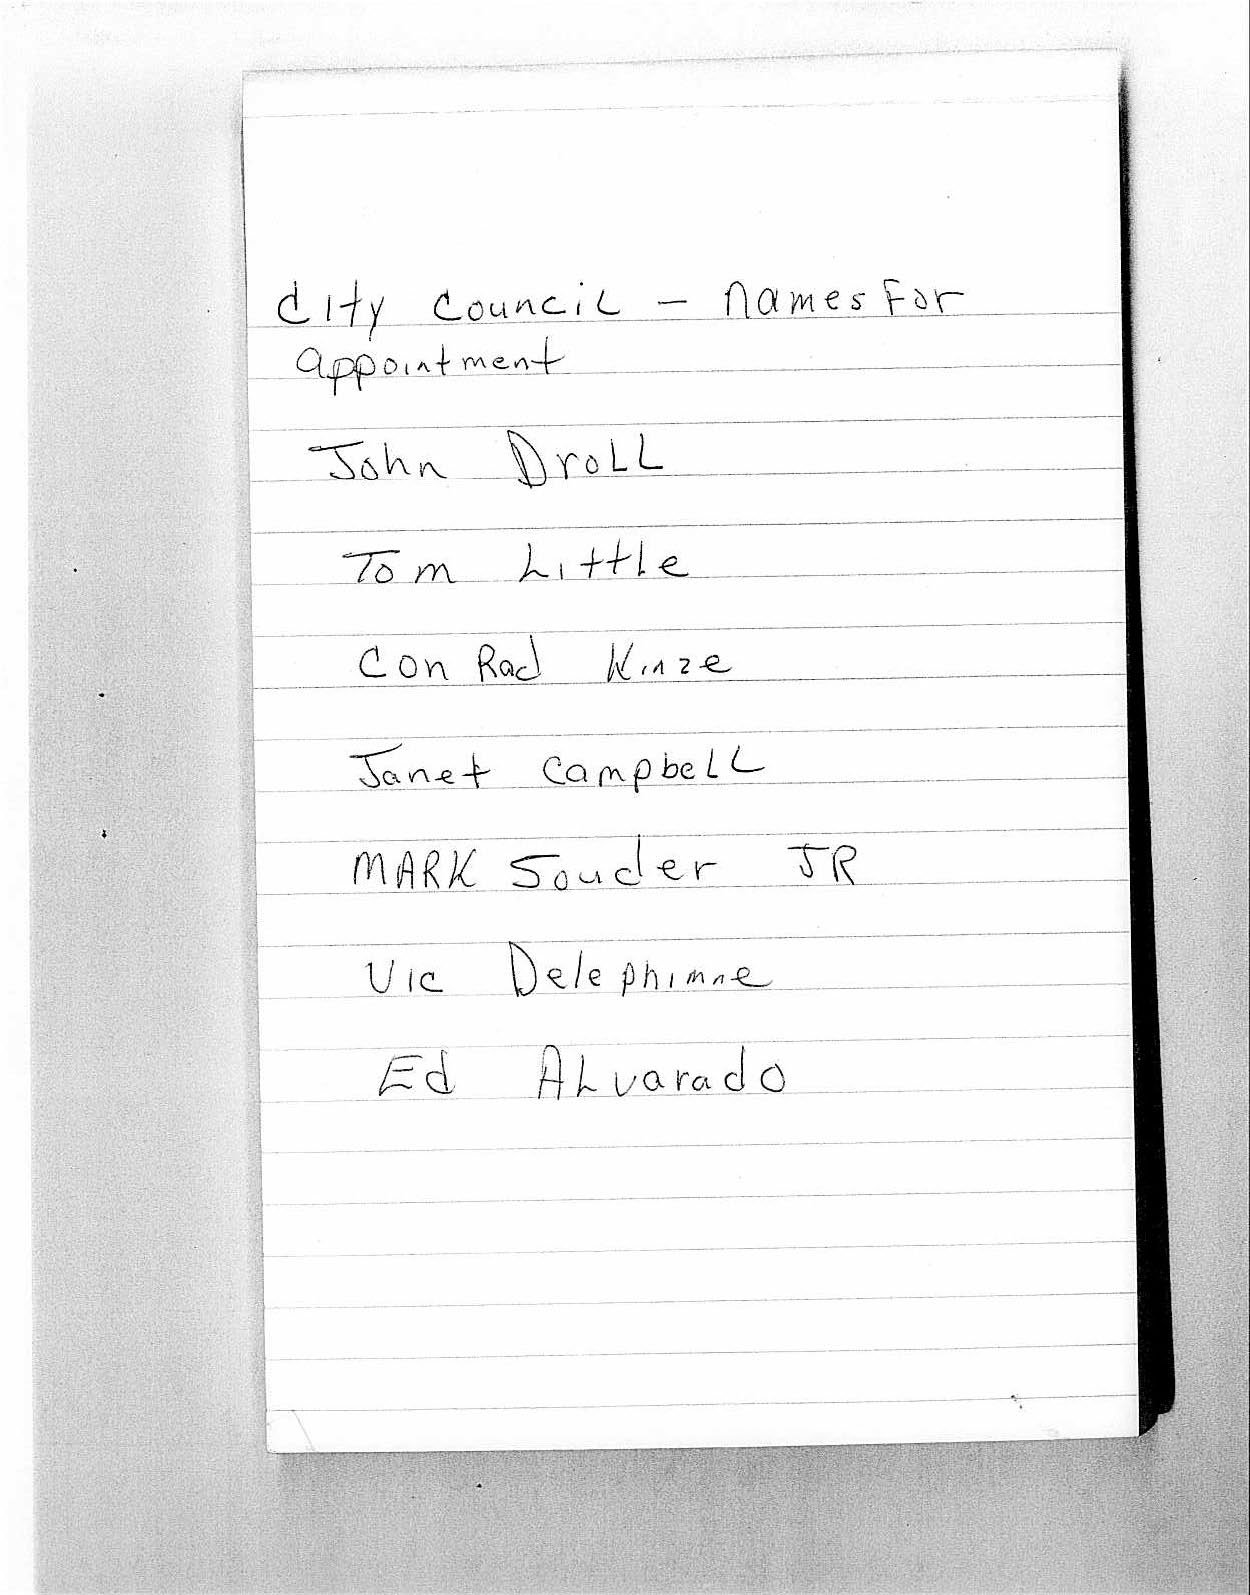 City Council - Names For
appointment
John Droll
Tom Little
Con Rad Kinze
Janet Campbell
MARK Souder JR
Vic Delephimne
Ed ALvarado